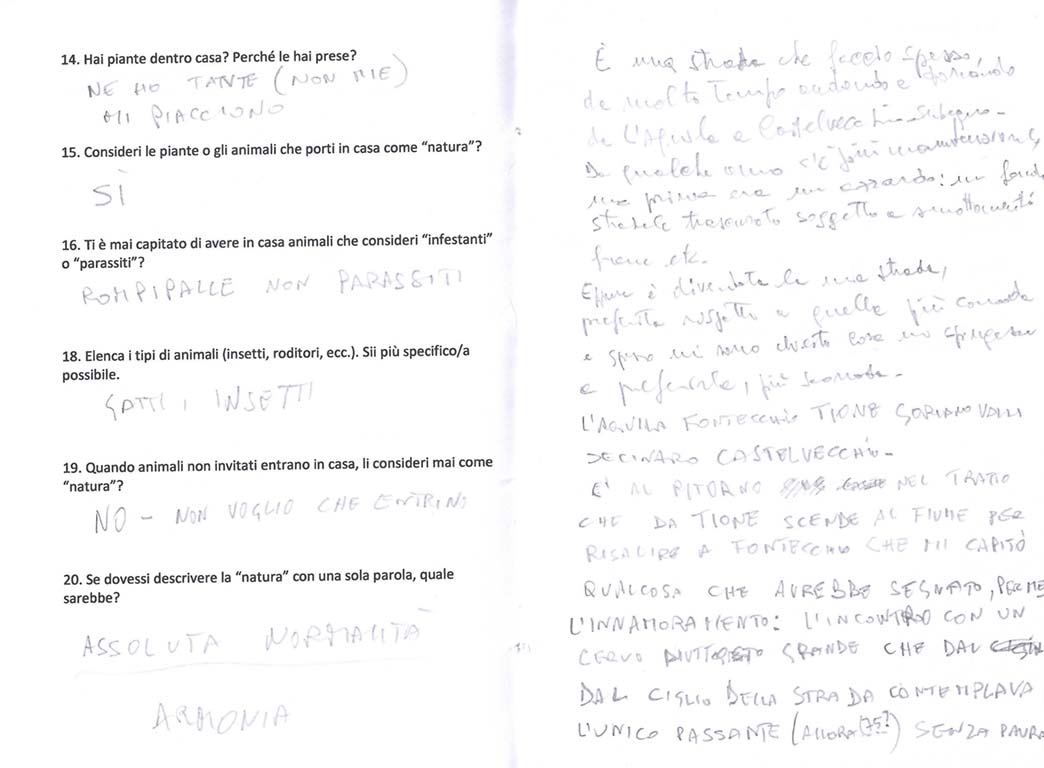 14. Hai piante dentro casa? Perché le hai prese?
NE HO TANTE (NON MIE)
MI PIACCIONO
15. Consideri le piante o gli animali che porti in casa come “natura”?
SÌ
16. Ti è mai capitato di avere in casa animali che consideri “infestanti”
o “parassiti”?
ROMPIPALLE NON PARASSITI
18. Elenca i tipi di animali (insetti, roditori, ecc.). Sii più specifico/a
possibile.
GATTI, INSETTI
19. Quando animali non invitati entrano in casa, li consideri mai come
“natura”?
NO - NON VOGLIO CHE ENTRINO
20. Se dovessi descrivere la “natura” con una sola parola, quale
sarebbe?
ASSOLUTA NORMALITÀ
ARMONIA
È una strada che faccio spesso,
da molto tempo andando e tornando
da L'Aquila a Castelvecchio Subequo -
Da qualche anno c'è più manutenzione,
ma prima era un azzardo: un
stradale trascurato soggetto a smottamenti
frane etc.
Eppure è diventata la mia strada,
preferita rispetto a quella più comoda
e spesso mi sono chiesto cosa mi spingesse
a preferirla, più scomoda -
L'AQUILA FONTECCHIO TIONE GORIANO VALLI
SECINARO CASTELVECCHIO -
E' AL RITORNO NEL TRATTO
CHE DA TIONE SCENDE AL FIUME PER
RISALIRE A FONTECCHIO CHE MI CAPITÒ
QUALCOSA CHE AVREBBE SEGNATO, PER ME
L'INNAMORAMENTO: L'INCONTRO CON UN
CERVO PIUTTOSTO GRANDE CHE DAL
DAL CIGLIO DELLA STRADA CONTEMPLAVA
L'UNICO PASSANTE (ALLORA SENZA PAURA